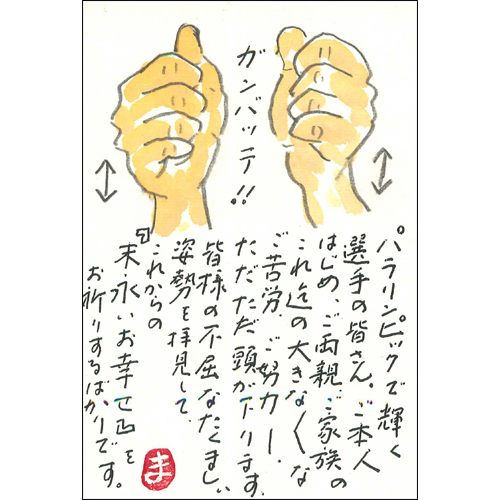 ガンバッテ!!
パラリンピックで輝く
選手の皆さん。ご本人
はじめ、ご両親、ご家族の
これ迄の大きな
ご苦労、ご努力
ただただ頭が下ります。
皆様の不屈なたくましい
姿勢を拝見して、
これからの
『末永いお幸せ』を
お祈りするばかりです。
ま